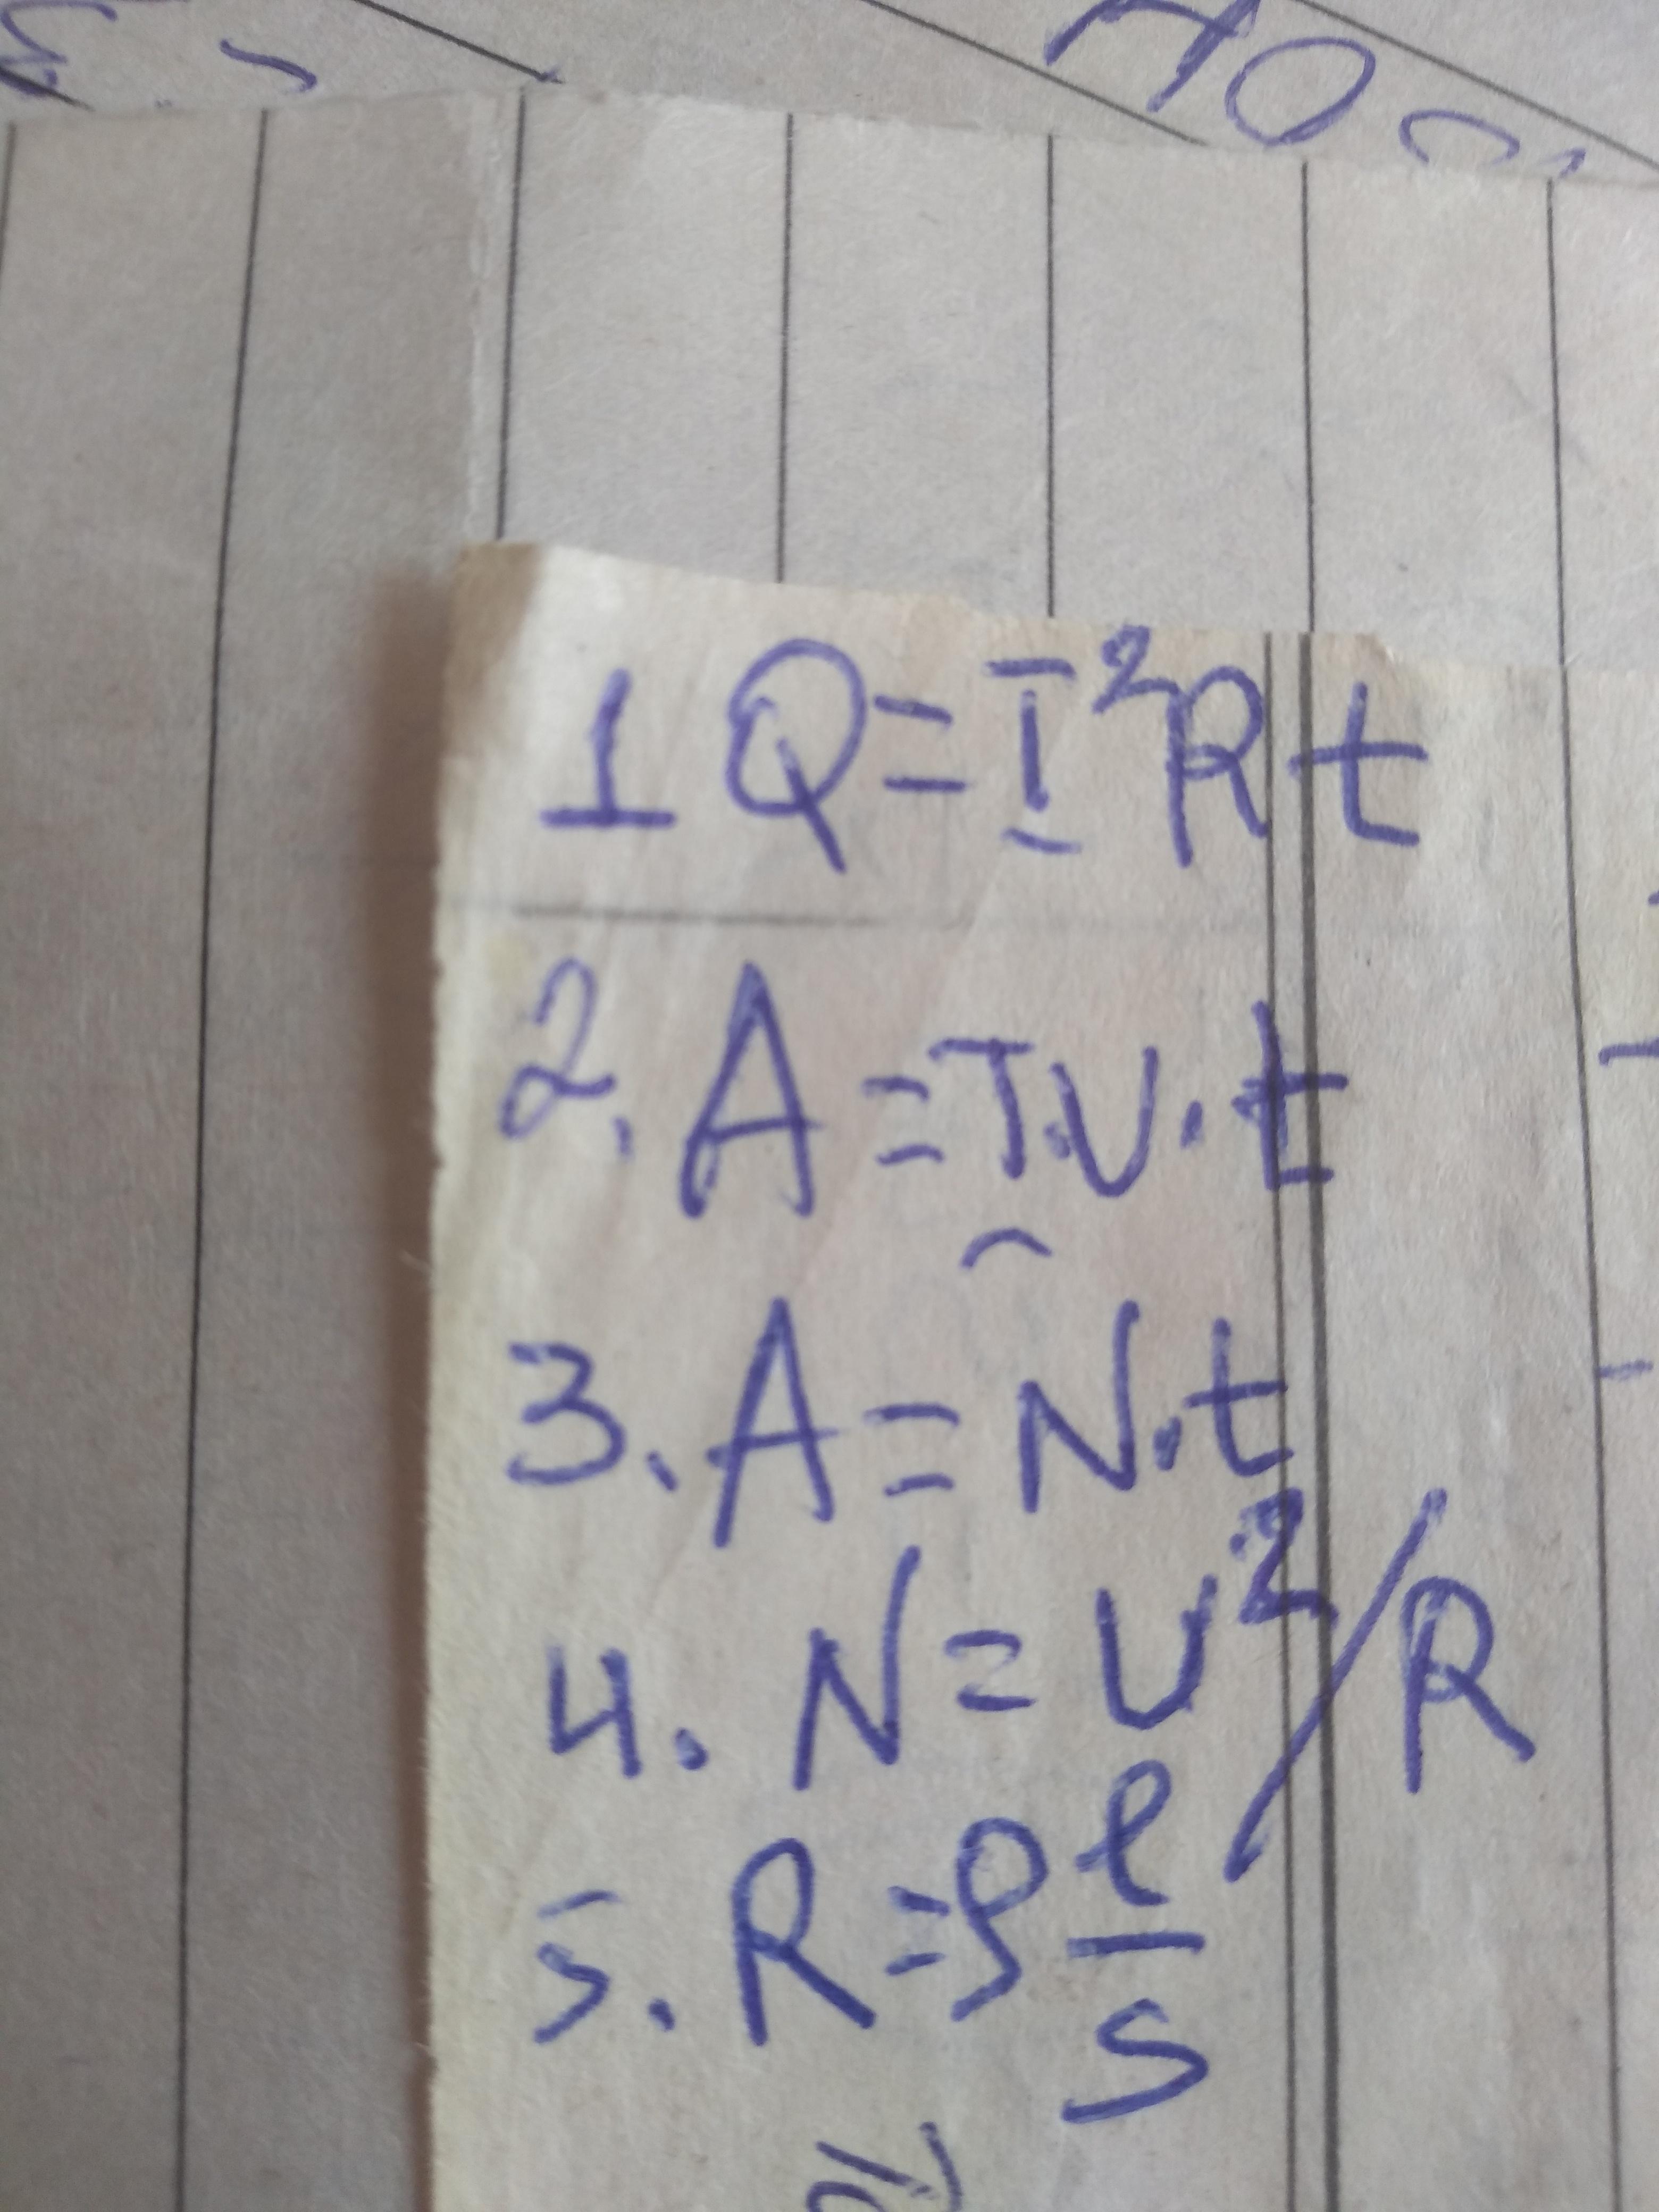 1 Q=I²Rt
2. A=I·U·t
3. A=N·t
4. N=U²/R
5. R=ρ l/s